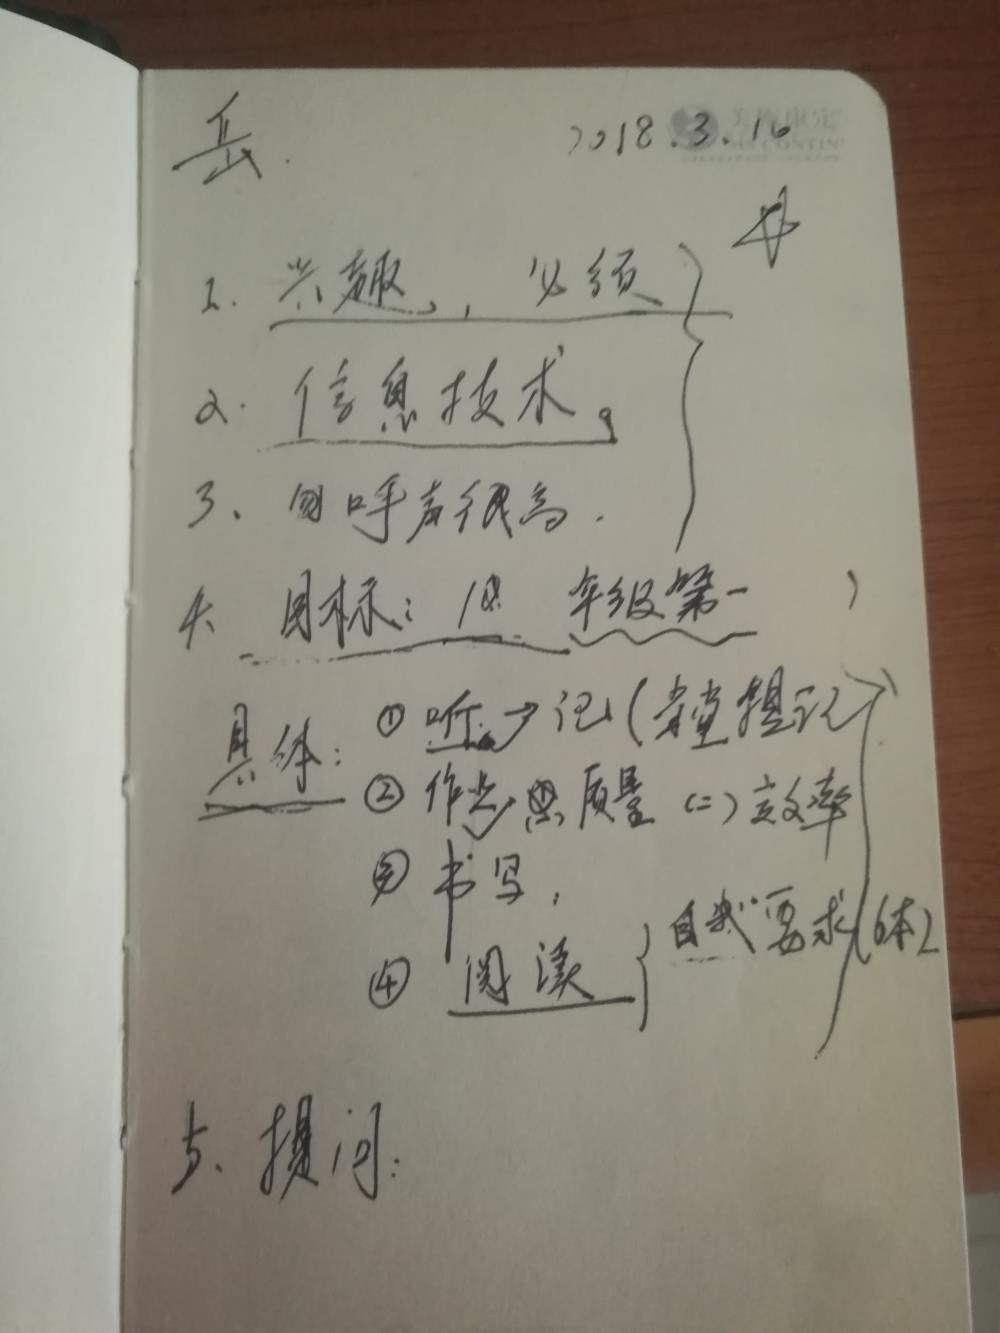 岳.
2018.3.16
1. 兴趣, 必须
2. 信息技术。
3、 呼声很高.
4、 目标: 年级第一
具体: ① 听→记(当堂提记
② 作业 质量 (二) 效率
③ 书写,
④ 阅读 自我要求(6本)
5、提问: